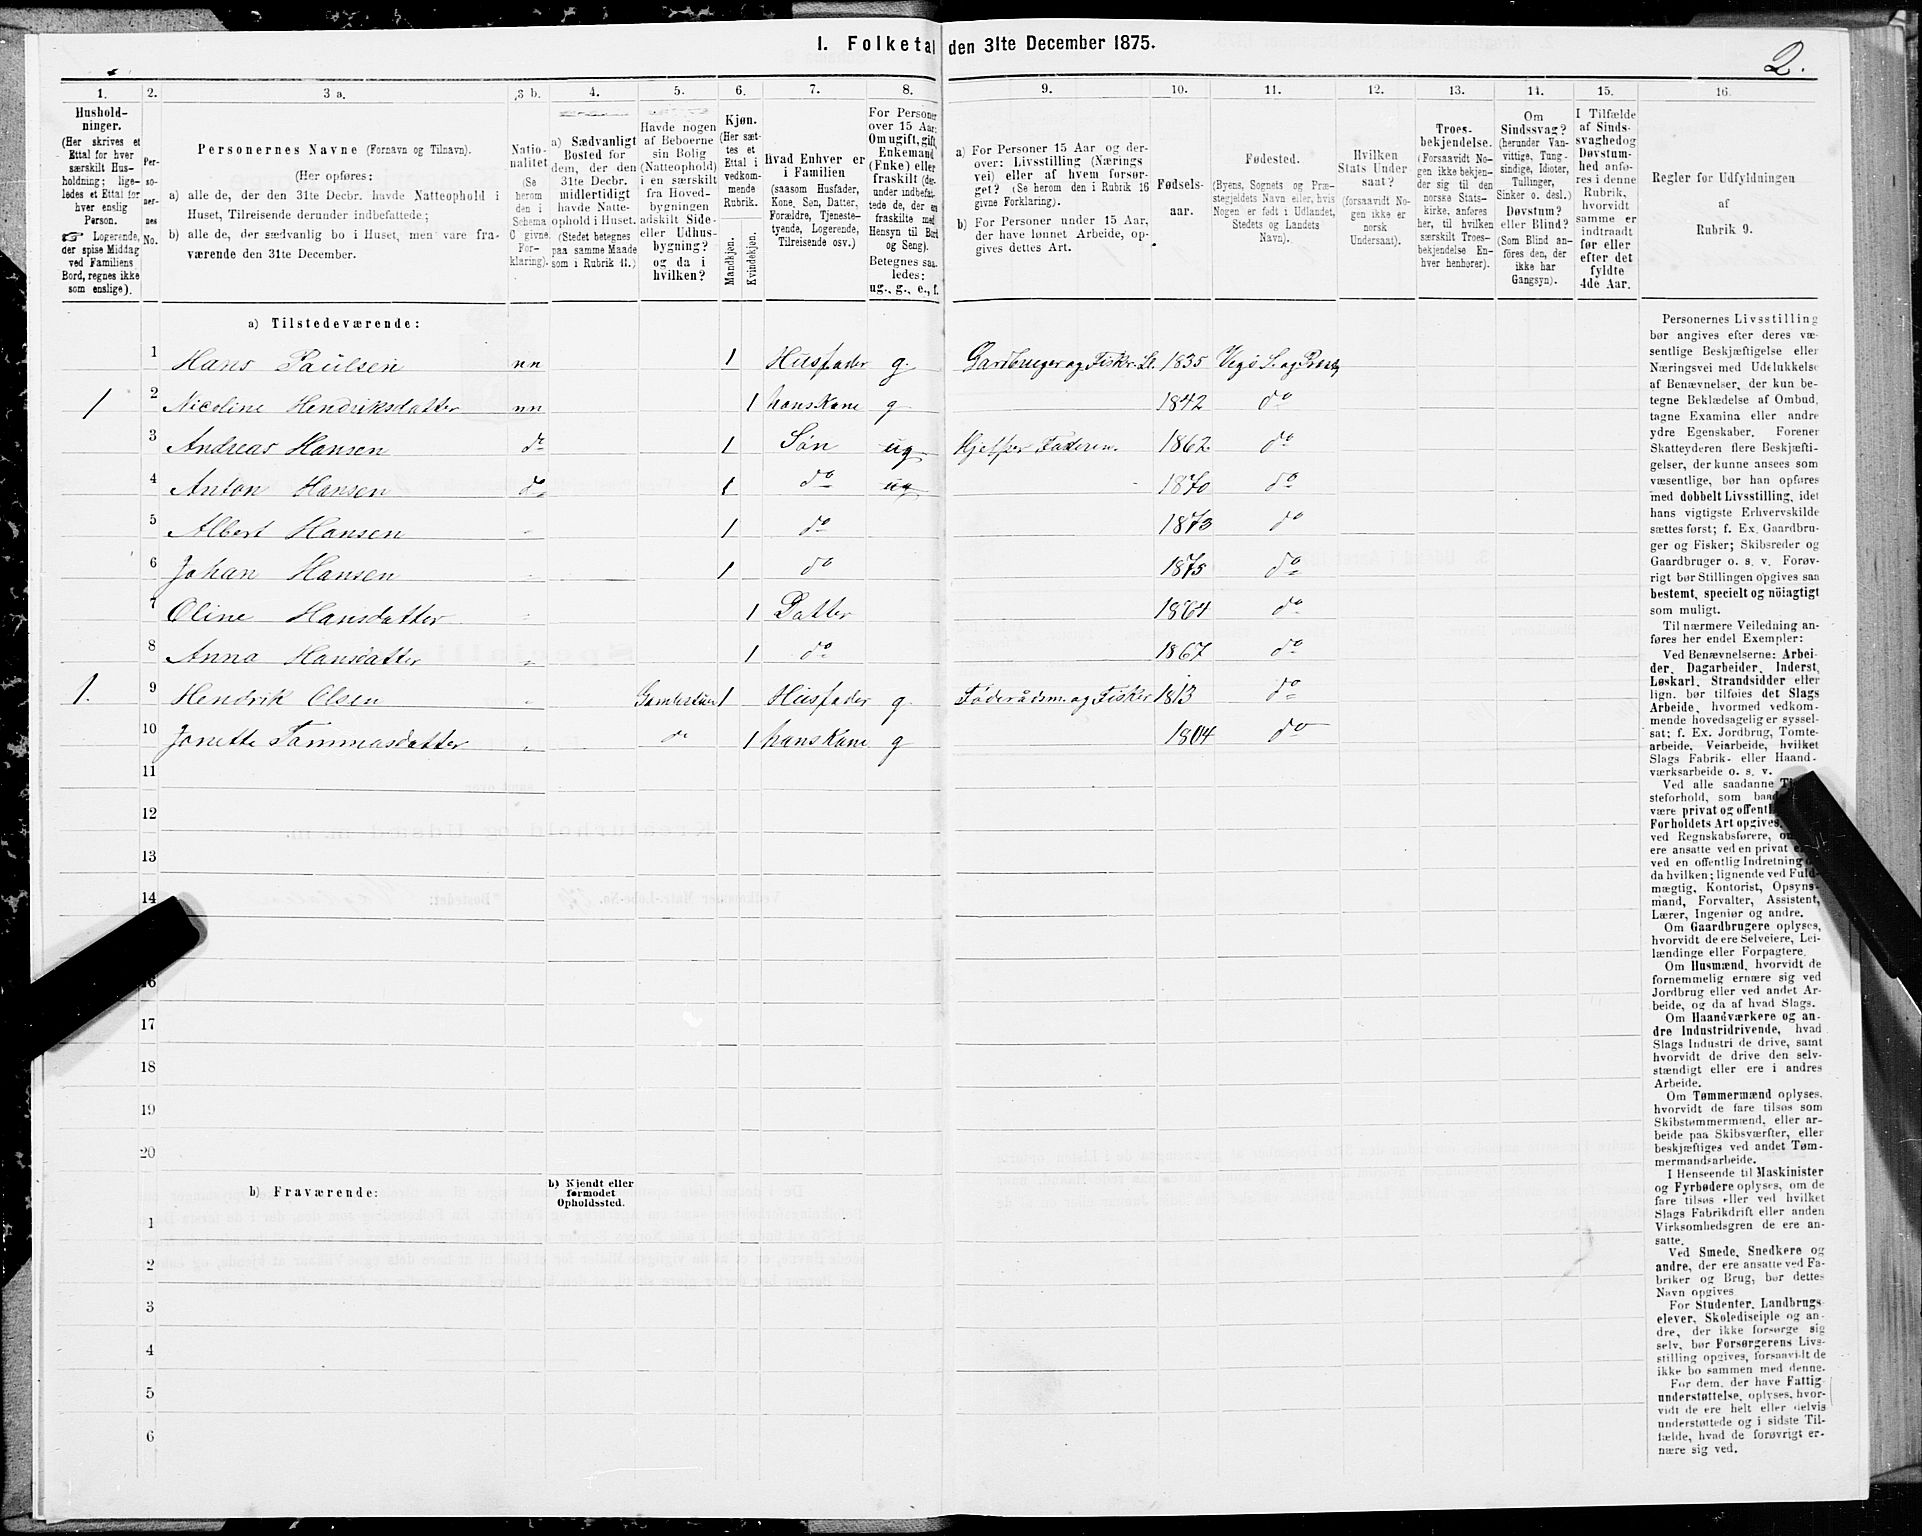 1. Folketal den 31te December 1875.
2.
1. 2. 3 a. 3 b. 4. 5. 6. 7. 8. 9. 10. 11. 12. 13. 14. 15. 16.
Hushold-
ninger.
(Her skrives et
Ettal for hver
særskilt Hus-
holdning; lige-
ledes et Ettal for
hver enslig
Person.
☞ Logerende,
der spise Middag
ved Familiens
Bord, regnes ikke
som enslige).
Per-
so-
ner-
nes
No.
Personernes Navne (Fornavn og Tilnavn).
(Her opføres:
a) alle de, der den 31te Decbr. havde Natteophold i
Huset, Tilreisende derunder indbefattede;
b) alle de, der sædvanlig bo i Huset, men vare fra-
værende den 31te December.
Natio-
nalitet
(Se
herom
den i
Schema
C givne
For-
klaring).
a) Sædvanligt
Bosted for
dem, der den
31te Decbr.
midlertidigt
havde Natte-
ophold i Huset.
(Stedet betegnes
paa samme Maade
som i Rubrik 11.)
Havde nogen
af Beboerne
sin Bolig
(Natteophold)
i en særskilt
fra Hoved-
bygningen
adskilt Side-
eller Udhus-
bygning?
og da i
hvilken?
Kjøn.
(Her sæt-
tes et
Ettal i
vedkom-
mende
Rubrik.
Mandkjøn.
Kvindekjøn.
Hvad Enhver er
i Familien
(saasom Husfader,
Kone, Søn, Datter,
Forældre, Tjeneste-
tyende, Logerende,
Tilreisende osv.)
For Personer
over 15 Aar:
Om ugift, gift,
Enkemand
(Enke) eller
fraskilt (der-
under indbefat-
tede de, der ere
fraskilte med
Hensyn til Bord
og Seng).
Betegnes saa-
ledes:
ug., g., e., f.
a) For Personer 15 Aar og der-
over: Livsstilling (Nærings
vei) eller af hvem forsør-
get? (Se herom den i Rubrik 16
givne Forklaring).
b) For Personer under 15 Aar,
der have lønnet Arbeide, op-
gives dettes Art.
Fødsels-
aar.
Fødested.
(Byens, Sognets og Præ-
stegjeldets Navn eller, hvis
Nogen er født i Udlandet,
Stedets og Landets
Navn).
Hvilken
Stats Under
saat?
(forsaavidt No-
gen ikke er
norsk
Undersaat).
Troes-
bekjendelse.
(Forsaavidt No-
gen ikke bekjen-
der sig til den
norske Stats-
kirke, anføres
her, til hvilken
særskilt Troes-
bekjendelse En-
hver henhører).
Om
Sindssvag?
(herunder Van-
vittige, Tung-
sindige, Idioter,
Tullinger,
Sinker o. desl.)
Døvstum?
eller Blind?
(Som Blind an-
føres den, der
ikke har
Gangsyn).
I Tilfælde
af Sinds-
svaghed og
Døvstum-
hed anfø-
res i denne
Rubrik,
hvorvidt
samme er
indtraadt
før eller
efter det
fyldte
4de Aar.
Regler for Udfyldningen
af
Rubrik 9.
a) Tilstedeværende:
1 Hans Paulsen nn 1 Husfader g. Gardbruger og Fisker. 1835 Vegø S. og Præstg
1 2 Nicoline Hendriksdatter nn 1 hans Kone g 1842 do
3 Andreas Hansen do 1 Søn ug Hjelper Faderen. 1862 do
4 Anton Hansen do 1 do ug 1870 do
5 Albert Hansen 1 do 1873 do
6 Johan Hansen 1 do 1875 do
7 Oline Hansdatter 1 Datter 1864 do
8 Anna Hansdatter 1 do 1867 do
1. 9 Hendrik Olsen 1 Husfader g. Føderådsm. og Fisker 1813 do
10 Jonette Tommasdatter do 1 hans Kone g 1804 do
11
12
13
14
16
17
18
19
20
b) Fraværende:
b) Kjendt eller
formodet
Opholdssted.
1
2
3
4
5
6
Personernes Livsstilling
bør angives efter deres væ-
sentlige Beskjæftigelse eller
Næringsvei med Udelukkelse
af Benævnelser, der kun be-
tegne Beklædelse af Ombud,
tagne Examina eller andre
ydre Egenskaber. Forener
Skatteyderen flere Beskjæfti-
gelser, der kunne ansees som
væsentlige, bør han opføres
med dobbelt Livsstilling, idet
hans vigtigste Erhvervskilde
sættes først; f. Ex. Gaardbru-
ger og Fisker; Skibsreder og
Gaardbruger o. s. v. Forøv-
rigt bør Stillingen opgives saa
bestemt, specielt og nöiagtigt
som muligt.
Til nærmere Veiledning an-
føres her endel Exempler:
Ved Benævnelserne: Arbei-
der, Dagarbeider, Inderst,
Løskarl, Strandsidder eller
lign. bør tilføies det Slags
Arbeide, hvormed vedkom-
mende hovedsagelig er syssel-
sat; f. Ex. Jordbrug, Tomte-
arbeide, Veiarbeide, hvilket
Slags Fabrik- eller Haand-
værksarbeide o. s. v.
Ved alle saadanne
steforhold, som
være privat og
Forholdets Art opgives,
ved Regnskabsførere,
ere ansatte ved en privat
ved en offentlig Indretning
da hvilken; lignende ved Fuld-
mægtig, Kontorist, Opsyns-
mand, Forvalter, Assistent,
Lærer, Ingeniør og andre.
Om Gaardbrugere oplyses,
hvorvidt de ere Selveiere, Lei-
lændinge eller Forpagtere.
Om Husmænd, hvorvidt de
fornemmelig ernære sig ved
Jordbrug eller ved andet Ar-
beide, og da af hvad Slags.
Om Haandværkere og an-
dre Industridrivende, hvad
Slags Industri de drive, samt
hvorvidt de drive den selv-
stændigt eller ere i andres
Arbeide.
Om Tømmermænd oplyses,
hvorvidt de fare tilsøs som
Skibstømmermænd, eller ar-
beide paa Skibsværfter, eller
beskjæftiges ved andet Tøm-
mermandsarbeide.
I Henseende til Maskinister
og Fyrbødere oplyses, om de
fare tilsøs eller ved hvilket
Slags Fabrikdrift eller anden
Virksomhedsgren de ere an-
satte.
Ved Smede, Snedkere og
andre, der ere ansatte ved Fa-
briker og Brug, bør dettes
Navn opgives
For Studenter, Landbrugs-
elever, Skoledisciple og an-
dre, der ikke forsørge sig
selv, bør Forsørgerens Livs-
stilling opgives, forsaavidt de
ikke bo sammen med denne.
For dem, der have Fattig-
understøttelse, oplyses, hvor-
vidt de ere helt eller delvis
understøttede og i sidste Til-
fælde, hvad de forøvrigt er-
nære sig ved.